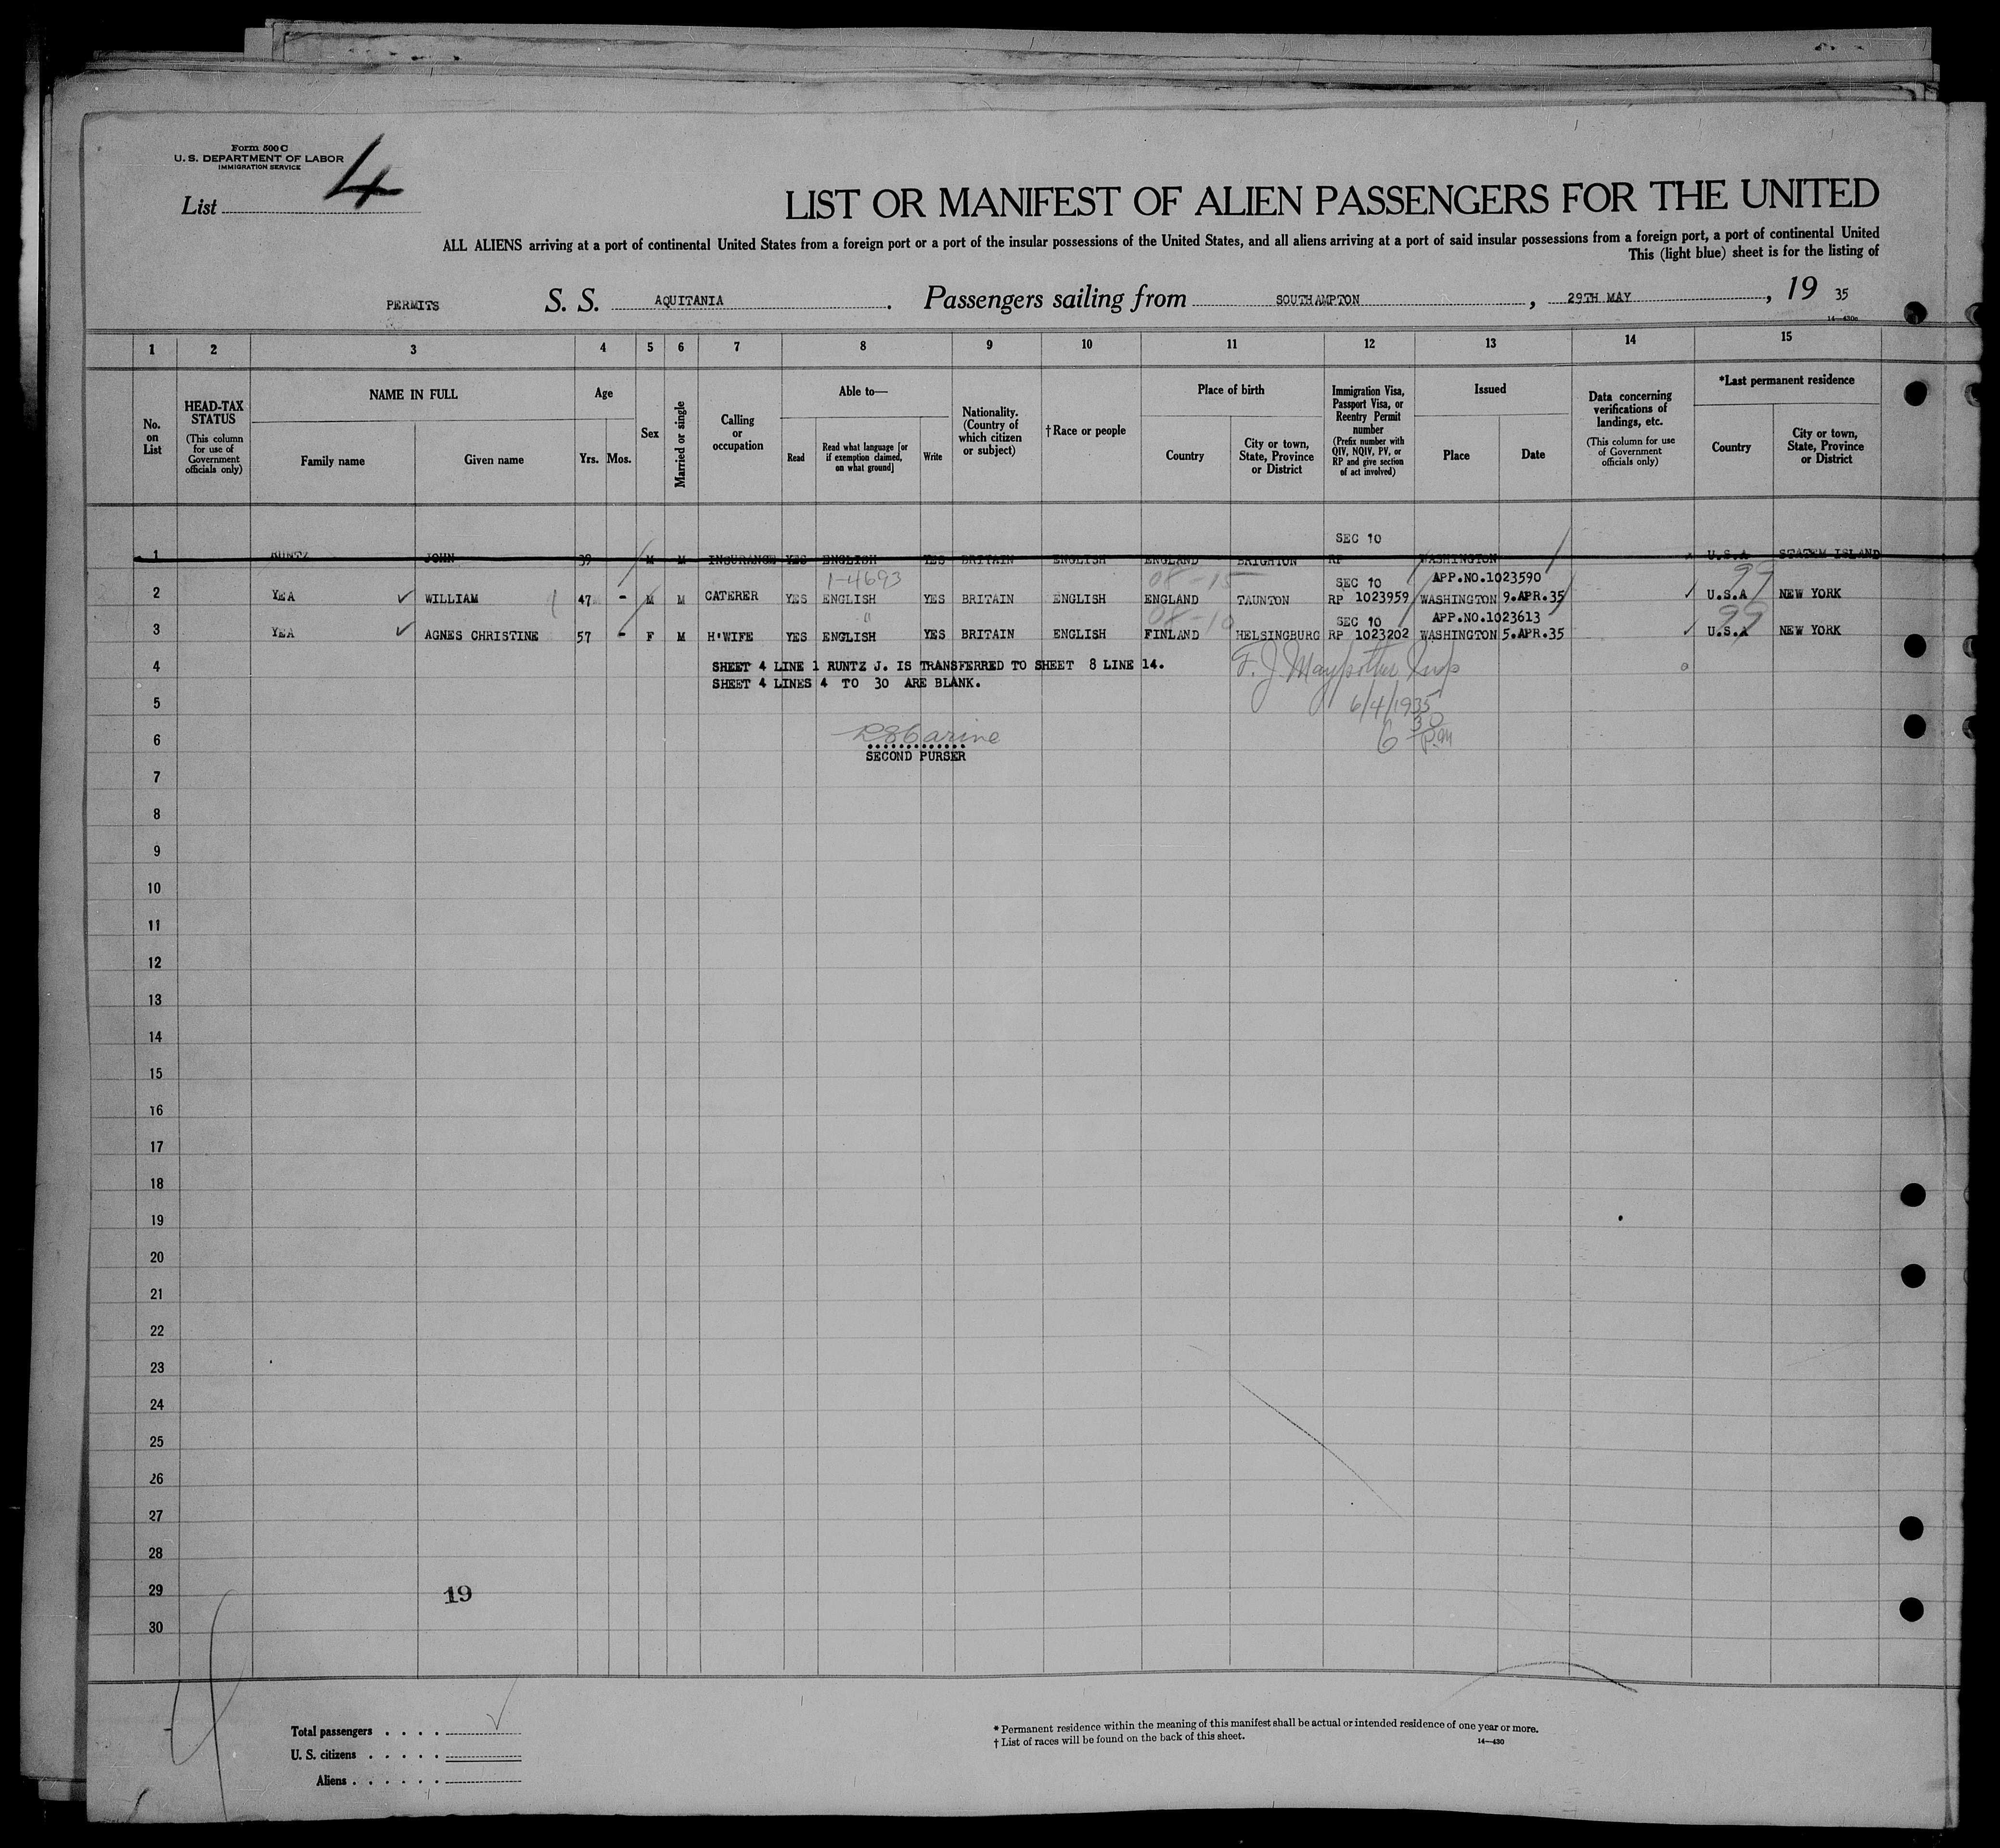 Form 500 C
U. S. DEPARTMENT OF LABOR
IMMIGRATION SERVICE
List 4
LIST OR MANIFEST OF ALIEN PASSENGERS FOR THE UNITED
ALL ALIENS arriving at a port of continental United States from a foreign port or a port of the insular possessions of the United States, and all aliens arriving at a port of said insular possessions from a foreign port, a port of continental United
This (light blue) sheet is for the listing of
PERMITS S. S. AQUITANIA . Passengers sailing from SOUTHAMPTON , 29TH MAY , 19 35
14—430c
1 2 3 4 5 6 7 8 9 10 11 12 13 14 15
No. on List
HEAD-TAX STATUS (This column for use of Government officials only)
NAME IN FULL
Family name
Given name
Age
Yrs. Mos.
Sex
Married or single
Calling or occupation
Able to—
Read
Read what language [or if exemption claimed, on what ground]
Write
Nationality. (Country of which citizen or subject)
† Race or people
Place of birth
Country
City or town, State, Province or District
Immigration Visa, Passport Visa, or Reentry Permit number (Prefix number with QIV, NQIV, PV, or RP and give section of act involved)
Issued
Place
Date
Data concerning verifications of landings, etc. (This column for use of Government officials only)
*Last permanent residence
Country
City or town, State, Province or District
SEC 10
1 RUNTZ JOHN 39 M M INSURANCE YES ENGLISH YES BRITAIN ENGLISH ENGLAND BRIGHTON RP WASHINGTON U.S.A STATEM ISLAND
1-4693 08-15 SEC 10 APP.NO.1023590 99
2 YEA WILLIAM 47 - M M CATERER YES ENGLISH YES BRITAIN ENGLISH ENGLAND TAUNTON RP 1023959 WASHINGTON 9.APR.35 U.S.A NEW YORK
" 08-10 SEC 10 APP.NO.1023613 99
3 YEA AGNES CHRISTINE 57 - F M H'WIFE YES ENGLISH YES BRITAIN ENGLISH FINLAND HELSINGBURG RP 1023202 WASHINGTON 5.APR.35 U.S.A NEW YORK
4 SHEET 4 LINE 1 RUNTZ J. IS TRANSFERRED TO SHEET 8 LINE 14.
SHEET 4 LINES 4 TO 30 ARE BLANK.
F. J.
5
6/4/1935
6 30 P.M
6
SECOND PURSER
7
8
9
10
11
12
13
14
15
16
17
18
19
20
21
22
23
24
25
26
27
28
29
19
30
Total passengers . . . .
U. S. citizens . . . . .
Aliens . . . . . .
* Permanent residence within the meaning of this manifest shall be actual or intended residence of one year or more.
† List of races will be found on the back of this sheet.
14—430